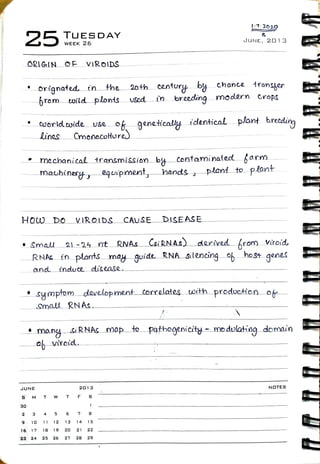 25 TUESDAY
WEEK 26
1-7-2020
&
JUNE, 2013
ORIGIN OF VIROIDS
• orignated in the 20th century by chance transfer
from wild plants used in breeding modern crops
• worldwide use of genetically identical plant breeding
lines (monocolture)
• mechanical transmission by contaminated farm
machinery, equipment, hands, plant to plant
HOW DO VIROIDS CAUSE DISEASE
• Small 21-24 nt RNAs (siRNAs) derived from viroid
RNAs in plants may guide RNA silencing of host genes
and induce disease.
• symptom development correlates with production of
small RNAs.
• many siRNAs map to pathogenicity - modulating domain
of viroid.
JUNE 2013
S M T W T F S
30 1
2 3 4 5 6 7 8
9 10 11 12 13 14 15
16 17 18 19 20 21 22
23 24 25 26 27 28 29
NOTES